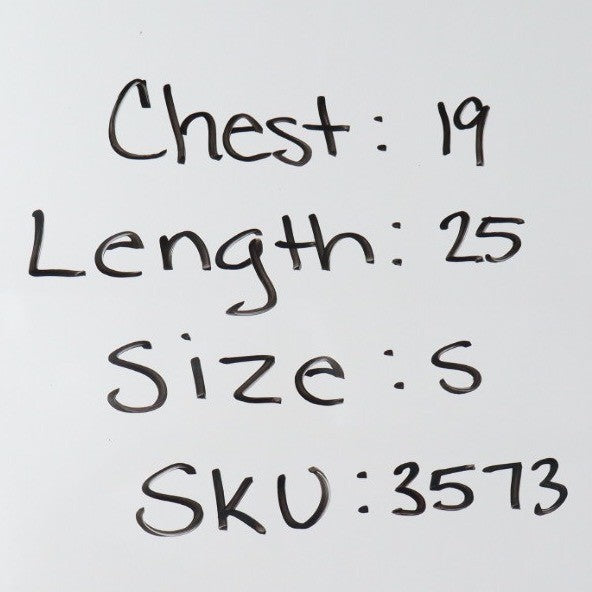 Chest: 19
Length: 25
Size: S
SKU: 3573